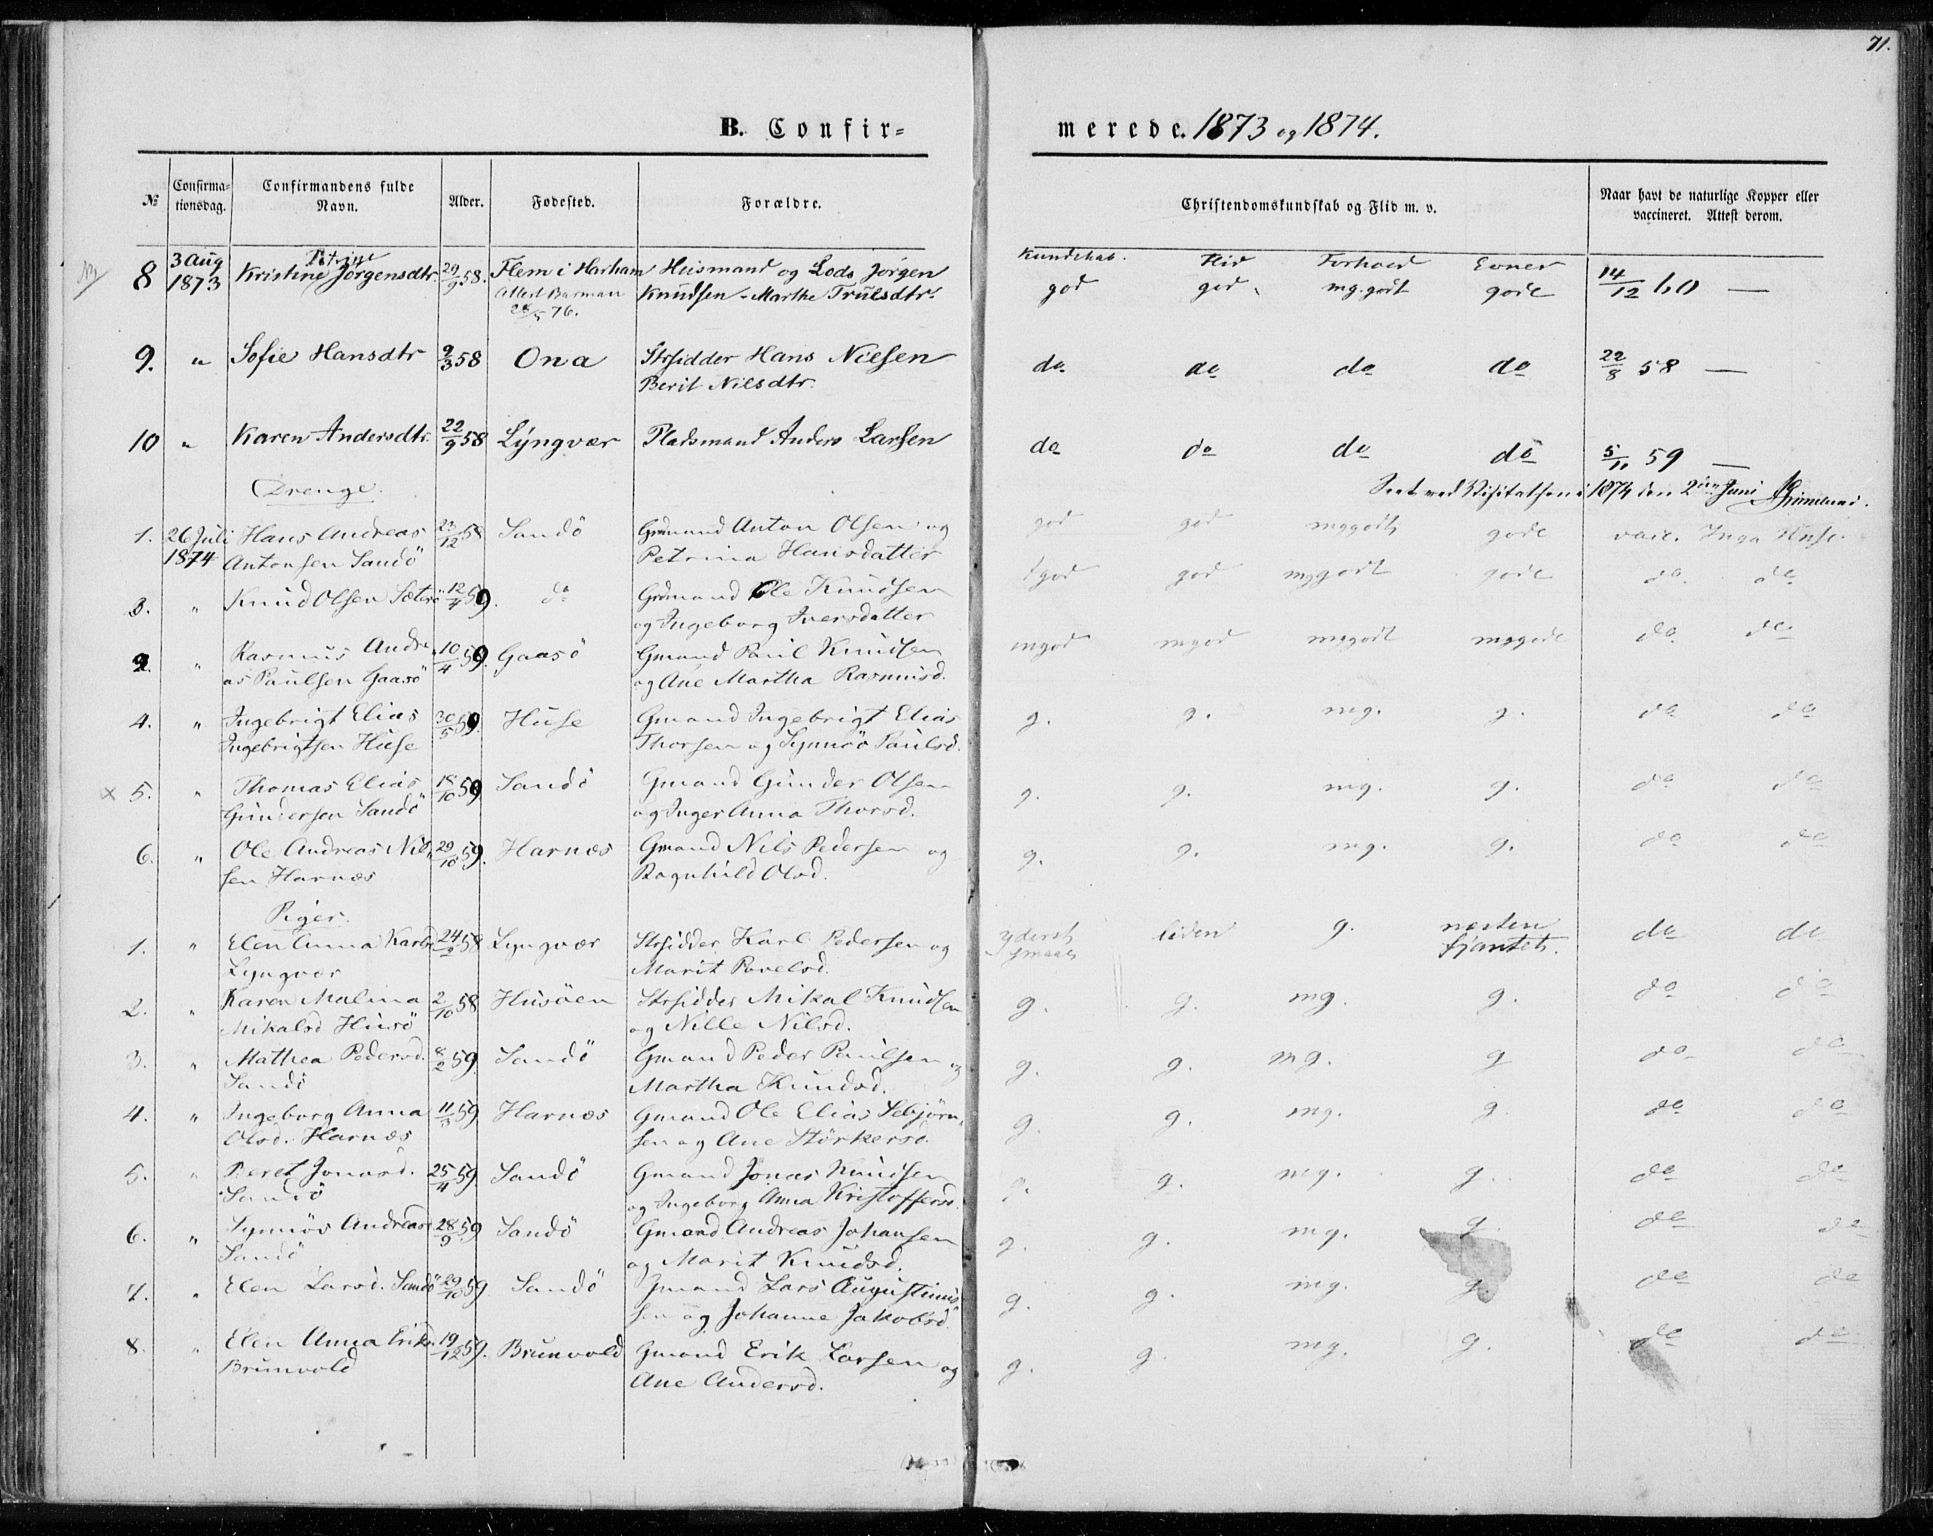 71.
B. Confir=
merede. 1873 og 1874.
№
Confirma=
tionsdag.
Confirmandens fulde
Navn.
Alder.
Fødested.
Forældre.
Christendomskundskab og Flid m. v.
Naar havt de naturlige Kopper eller
vaccineret. Attest derom.
Kundskab. Flid Forhold Evner
8 3 Aug 1873 Kristine Petrine Jørgensdtr. 29/9 58. Flem i Harham Huismand og Lods Jørgen god god mg. godt gode 14/12 60 —
Attest Barman Knudsen - Marthe Trulsdtr.
28/5 76.
9. " Sofie Hansdtr 9/3 58 Ona Strsidder Hans Nielsen do do do do 22/8 58 —
Berit Nilsdtr.
10 " Karen Andersdtr. 22/9 58 Lyngvær Pladsmand Anders Larsen do do do do 5/11 59 —
Drenge.
Seet ved Visitatsen i 1874 den 2den Juni
1. 26 Juli Hans Andreas 23/12 58 Sandö Grdmand Anton Olsen og god god mggodt gode vacc. Inga Huse
1874 Antonsen Sandö Petrina Hansdatter
3. " Knud Olsen 12/4 59. do Grdmand Ole Knudsen god mggodt gode do do
og Ingeborg Iversdatter
2. " Rasmus Andre 10/4 59. Gaasö Gmand Paul Knudsen mgod mgod mggodt mggode do do
as Paulsen Gaasö og Ane Martha Rasmusd.
4. " Ingebrigt Elias 30/5 59. Huse Gmand Ingebrigt Elias g. g. mg. g. do do
Ingebrigtsen Huse Thorsen og Synnöv Paulsd.
× 5. " Thomas Elias 18/10 59 Sandö Gmand Gunder Olsen g. g. mg. g. do do
Gundersen Sandö og Inger Anna Thorsd.
6. " Ole Andreas Nil 29/10 59. Harnæs Gmand Nils Pedersen og g. g. mg. g. do do
sen Harnæs Ragnhild Olsd.
Piger.
1. " Elen Anna Karlsd 24/2 58 Lyngvær Strsidder Karl Pedersen og yderst liden g. næsten do do
Lyngvær Marit Povelsd. fjantet.
2. " Karen Malina 2/10 58 Husöen Strsidder Mikal Knudsen g. g. mg. g. do do
Mikalsd Husö og Nille Nilsd.
3. " Mathea Pedersd. 8/2 59. Sandö Gmand Peder Paulsen og g. g. mg. g do do
Sandö Martha Knudsd.
4. " Ingeborg Anna 11/3 59. Harnæs Gmand Ole Elias Sebjørn g. g. mg. g do do
Olsd. Harnæs sen og Ane Størkersd.
5. " Beret Jonasd. 25/4 59 Sandö Gmand Jonas Knudsen g. g. mg. g. do do
Sandö og Ingeborg Anna Kristoffersd.
6. " Synnöv Andreasd 28/9 59 Sandö Gmand Andreas Johansen g. g. mg. g. do do
Sandö og Marit Knudsd.
7. " Elen Larsd. Sandö 29/10 59 Sandö Gmand Lars Augustinus g. g. mg. g. do do
sen og Johanne Jakobsd.
8. " Elen Anna Eriksd 19/12 59. Brunvold Gmand Erik Larsen og g. g. mg. g. do do
Brunvold Ane Andersd.